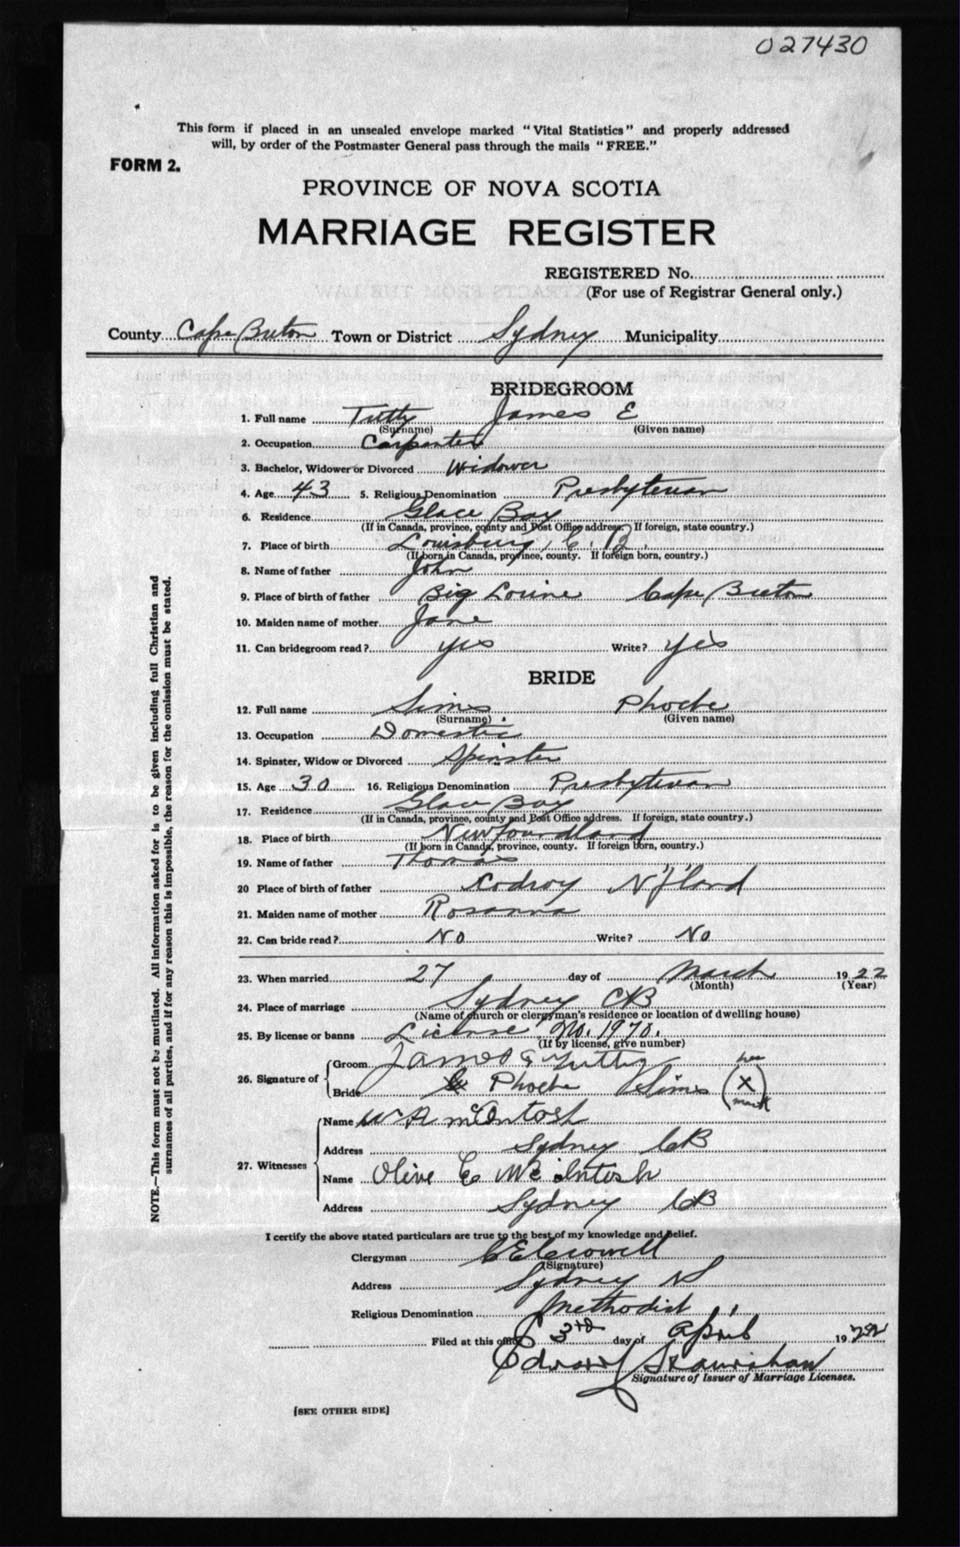 027430
This form if placed in an unsealed envelope marked "Vital Statistics" and properly addressed
will, by order of the Postmaster General pass through the mails "FREE."
FORM 2.
PROVINCE OF NOVA SCOTIA
MARRIAGE REGISTER
REGISTERED No.
(For use of Registrar General only.)
County Cape Breton Town or District Sydney Municipality
BRIDEGROOM
1. Full name Tutty James E
(Surname) (Given name)
2. Occupation Carpenter
3. Bachelor, Widower or Divorced Widower
4. Age 43 5. Religious Denomination Presbyterian
6. Residence Glace Bay
(If in Canada, province, county and Post Office address. If foreign, state country.)
7. Place of birth Louisburg, C. B.
(If born in Canada, province, county. If foreign born, country.)
8. Name of father John
9. Place of birth of father Big Lorine Cape Breton
10. Maiden name of mother Jane
11. Can bridegroom read? yes Write? yes
BRIDE
12. Full name Sims Phoebe
(Surname) (Given name)
13. Occupation Domestic
14. Spinster, Widow or Divorced Spinster
15. Age 30 16. Religious Denomination Presbyterian
17. Residence Glace Bay
(If in Canada, province, county and Post Office address. If foreign, state country.)
18. Place of birth Newfoundland
(If born in Canada, province, county. If foreign born, country.)
19. Name of father Thomas
20 Place of birth of father Codroy N'f'land
21. Maiden name of mother Rosanna
22. Can bride read? No Write? No
23. When married 27 day of March 1922
(Month) (Year)
24. Place of marriage Sydney CB
(Name of church or clergyman's residence or location of dwelling house)
25. By license or banns License No. 1970.
(If by license, give number)
26. Signature of Groom James E Tutty her
Bride Phoebe Sims (X)
mark
27. Witnesses Name W A McIntosh
Address Sydney CB
Name Olive E McIntosh
Address Sydney CB
I certify the above stated particulars are true to the best of my knowledge and belief.
Clergyman C E Crowell
(Signature)
Address Sydney NS
Religious Denomination Methodist
Filed at this office 3rd day of April 1922
Edward
Signature of Issuer of Marriage Licenses.
[SEE OTHER SIDE]
NOTE.—This form must not be mutilated. All information asked for is to be given including full Christian and
surnames of all parties, and if for any reason this is impossible, the reason for the omission must be stated.